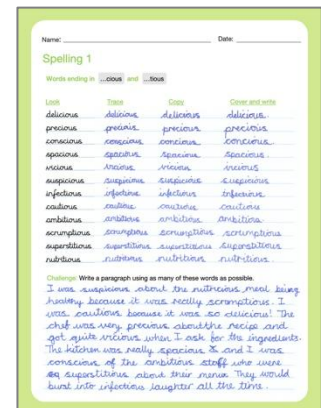 Name: Date:
Spelling 1
Words ending in ...cious and ...tious
Look Trace Copy Cover and write
delicious delicious delicious delicious.
precious precious precious precious.
conscious conscious concious concious.
spacious spacious spacious spacious.
vicious vicious vicious vicious
suspicious suspicious suspicious suspicious
infectious infectious infectious infectious.
cautious cautious cautious cautious
ambitious ambitious ambitious ambitious
scrumptious scrumptious scrumptious scrumptious
superstitious superstitious superstitious superstitious
nutritious nutritious nutritious nutritious.
Challenge: Write a paragraph using as many of these words as possible.
I was suspicious about the nutricious meal being
healthy because it was really scromptious. I
was cautious because it was so delicious! The
chef was very precious about the recipe and
got quite vicious when I ask for the ingredients.
The kitchen was really spacious and I was
conscious of the ambitious staff who were
superstitious about their menus. They would
burst into infectious laughter all the time.